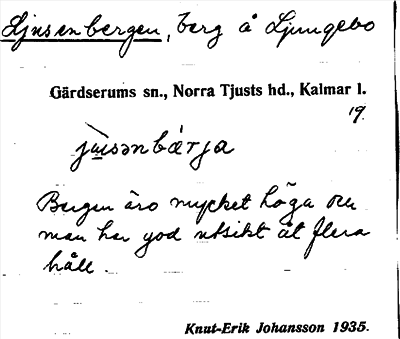 Ljusenbergen, berg å Ljungebo
Gärdserums sn., Norra Tjusts hd., Kalmar l.
19.
jùsənbǽrja
Bergen äro mycket höga och
man har god utsikt åt flera
håll.
Knut-Erik Johansson 1935.